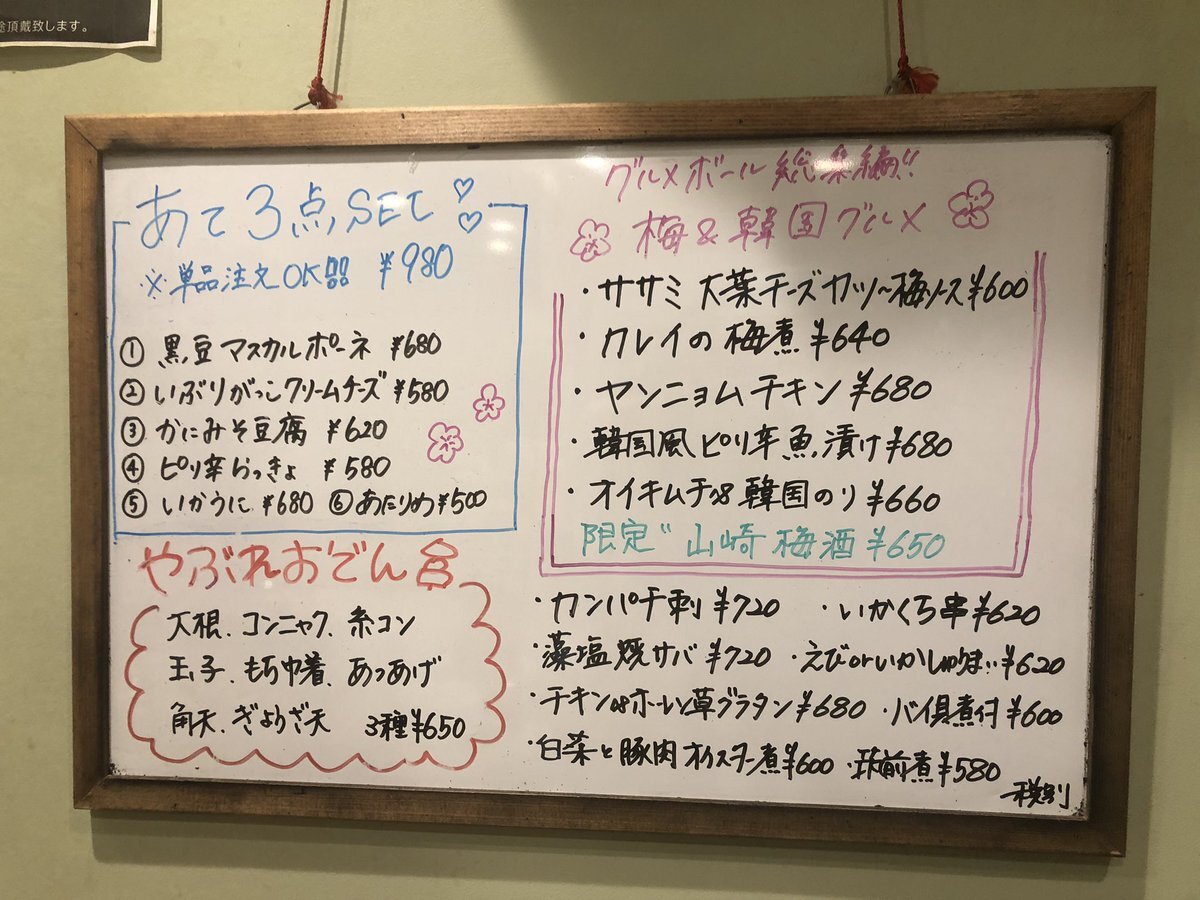 途頂戴致します。
あて3点SET
※単品注文OK ¥980
① 黒豆マスカルポーネ ¥680
② いぶりがっこクリームチーズ ¥580
③ かにみそ豆腐 ¥620
④ ピリ辛らっきょ ¥580
⑤ いかうに ¥680 ⑥ あにりめ ¥500
やぶれおでん
大根、コンニャク、糸コン
玉子、もち巾着、あつあげ
角天、ぎょうざ天 3種¥650
グルメボール総集編!!
梅&韓国グルメ
・ササミ大葉チーズカツ〜梅ソース¥600
・カレイの梅煮¥640
・ヤンニョムチキン¥680
・韓国風ピリ辛魚漬け¥680
・オイキムチ&韓国のり¥660
限定" 山崎梅酒¥650
・カンパチ刺¥720 ・いかくち串¥620
・藻塩焼サバ¥720 ・えびorいかしゅうまい¥620
・チキン&ホーレン草グラタン¥680 ・バイ貝煮付¥600
・白菜と豚肉オイスター煮¥600 ・筑前煮¥580
税別